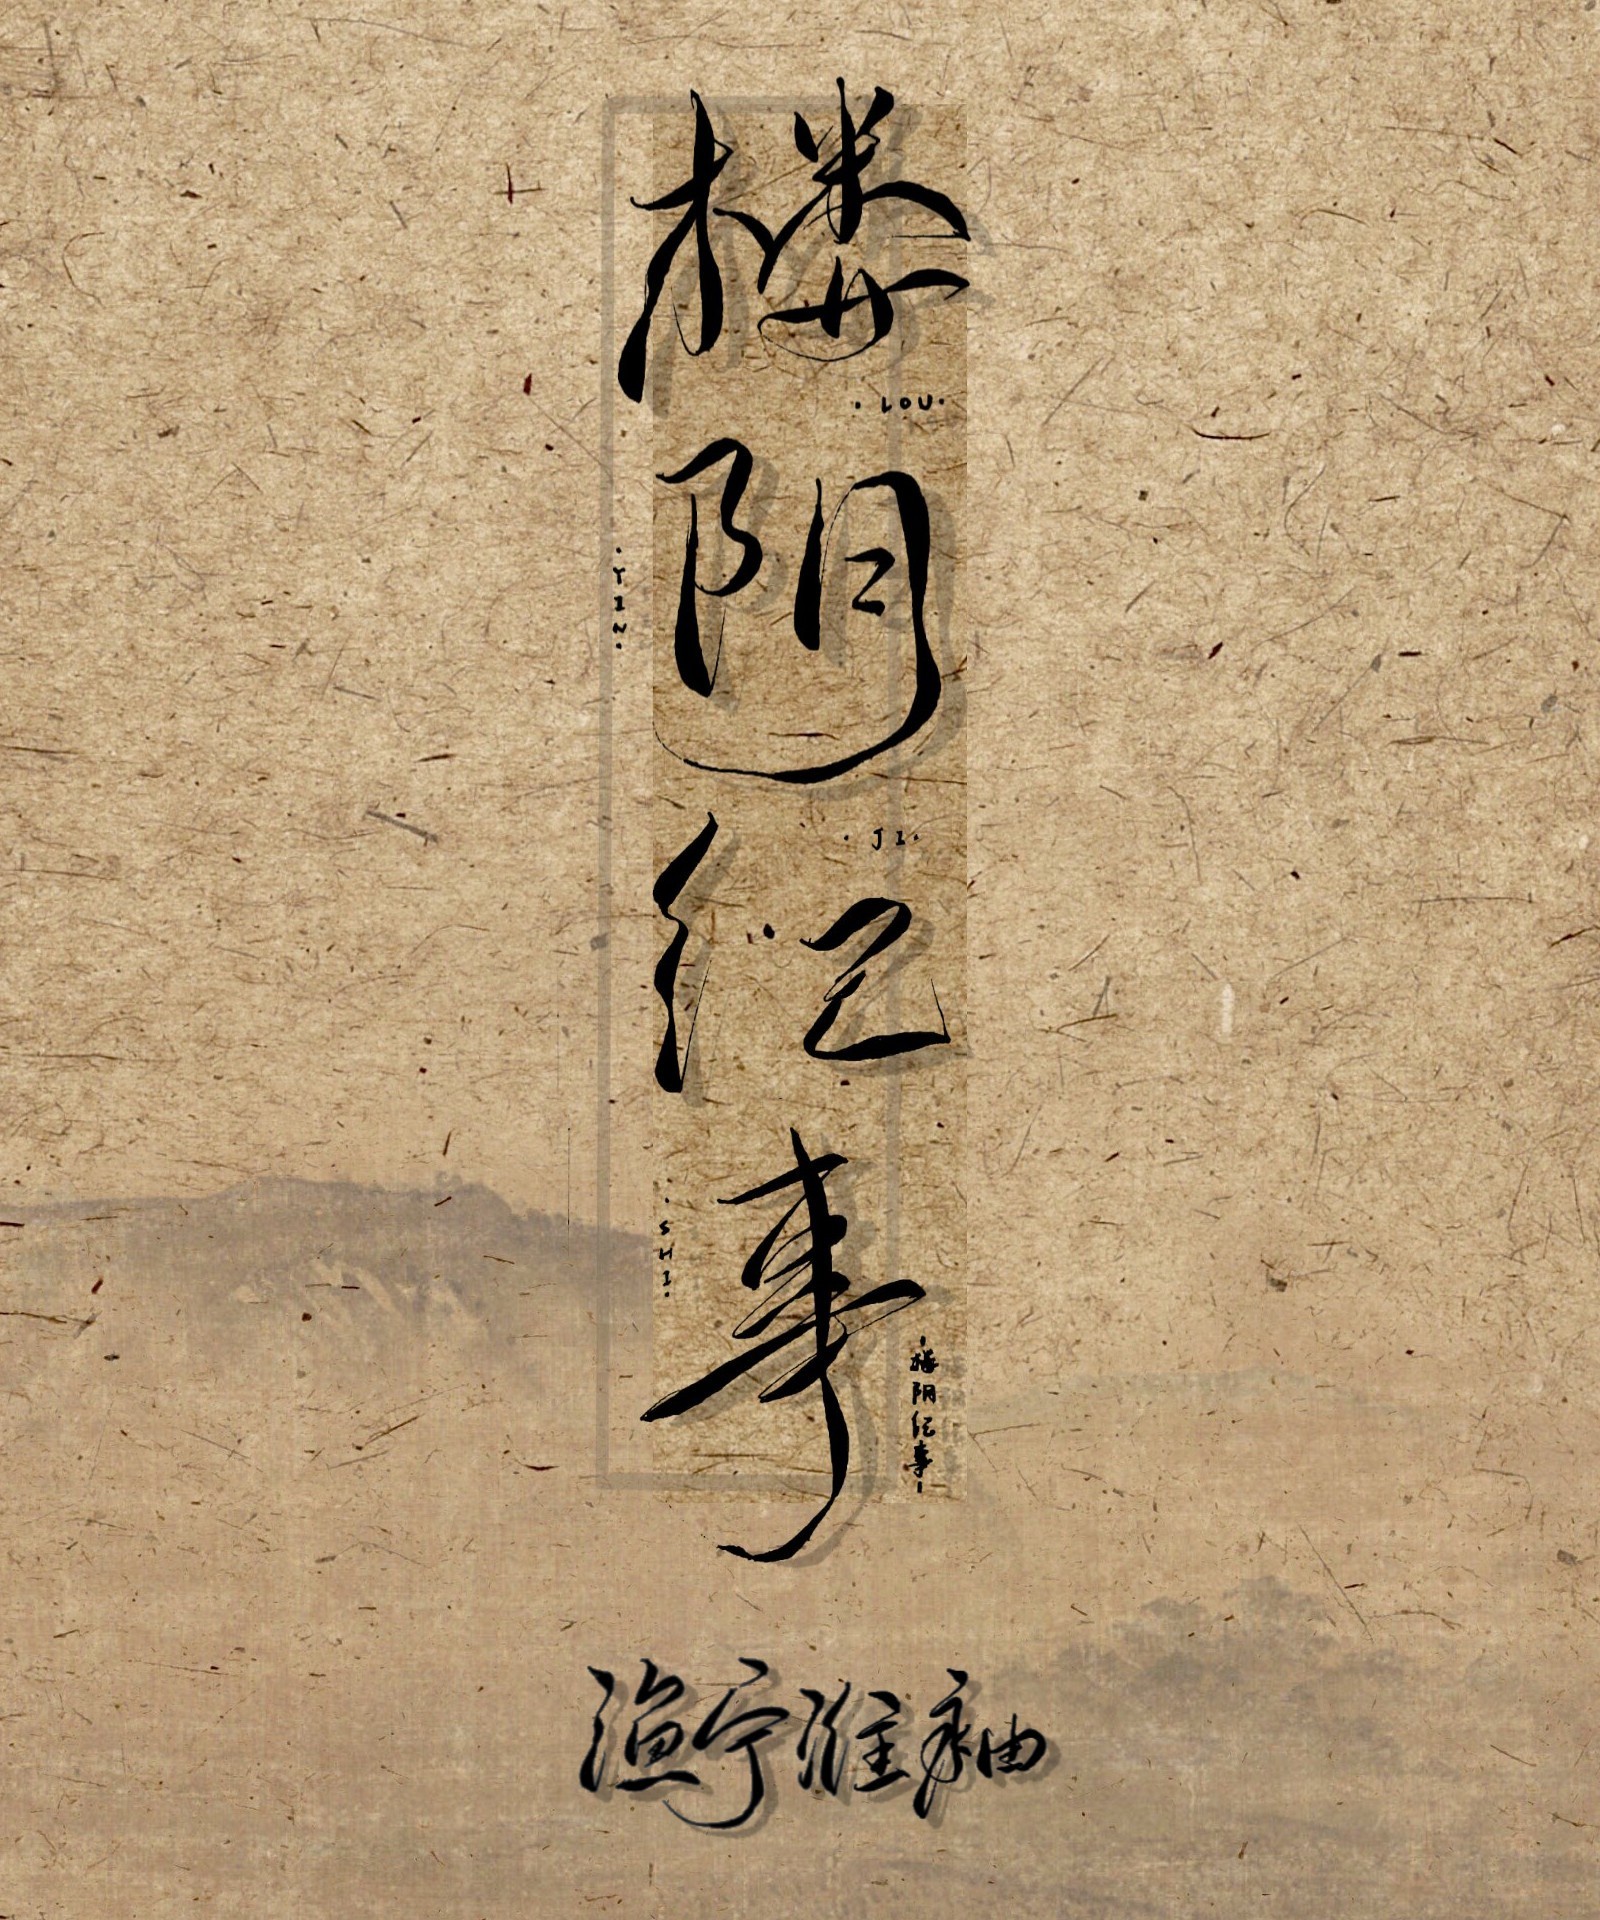 楼阴纪事
·LOU·
·YIN·
·JI·
·SHI·
·楼阴纪事-
渔宁袖